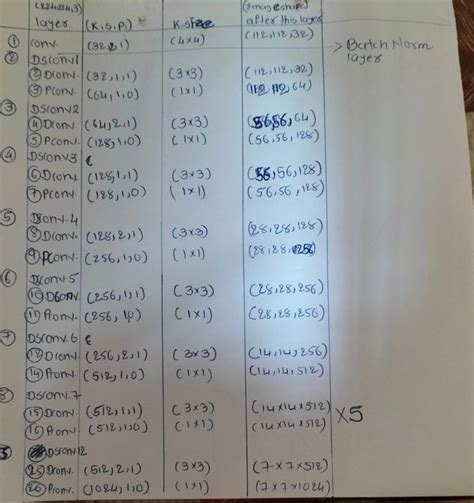 (224,224,3) (Image shape)
layer (K,S,P) K.Size after the layer
① conv. (32,2,1) (4x4) (112,112,32) → Batch Norm
② Dsconv1 layer
② Dconv. (32,1,1) (3x3) (112,112,32)
③ Pconv. (64,1,0) (1x1) (112,112,64)
③ Dsconv.2
④ Dconv. (64,2,1) (3x3) (56,56,64)
⑤ Pconv. (128,1,0) (1x1) (56,56,128)
④ Dsconv.3
⑥ Dconv. (128,1,1) (3x3) (56,56,128)
⑦ Pconv. (128,1,0) (1x1) (56,56,128)
⑤ Dsconv.4
⑧ Dconv. (128,2,1) (3x3) (28,28,128)
⑨ Pconv. (256,1,0) (1x1) (28,28,256)
⑥ Dsconv.5
⑩ Dconv. (256,1,1) (3x3) (28,28,256)
⑪ Pconv. (256,1,0) (1x1) (28,28,256)
⑦ Dsconv.6
⑬ Dconv. (256,2,1) (3x3) (14,14,256)
⑭ Pconv. (512,1,0) (1x1) (14,14,512)
Dsconv.7
⑮ Dconv. (512,1,1) (3x3) (14x14x512) X5
⑯ Pconv. (512,1,0) (1x1) (14x14x512)
Dsconv.12
㉕ Dconv. (512,2,1) (3x3) (7x7x512)
㉖ Pconv. (1024,1,0) (1x1) (7x7x1024)